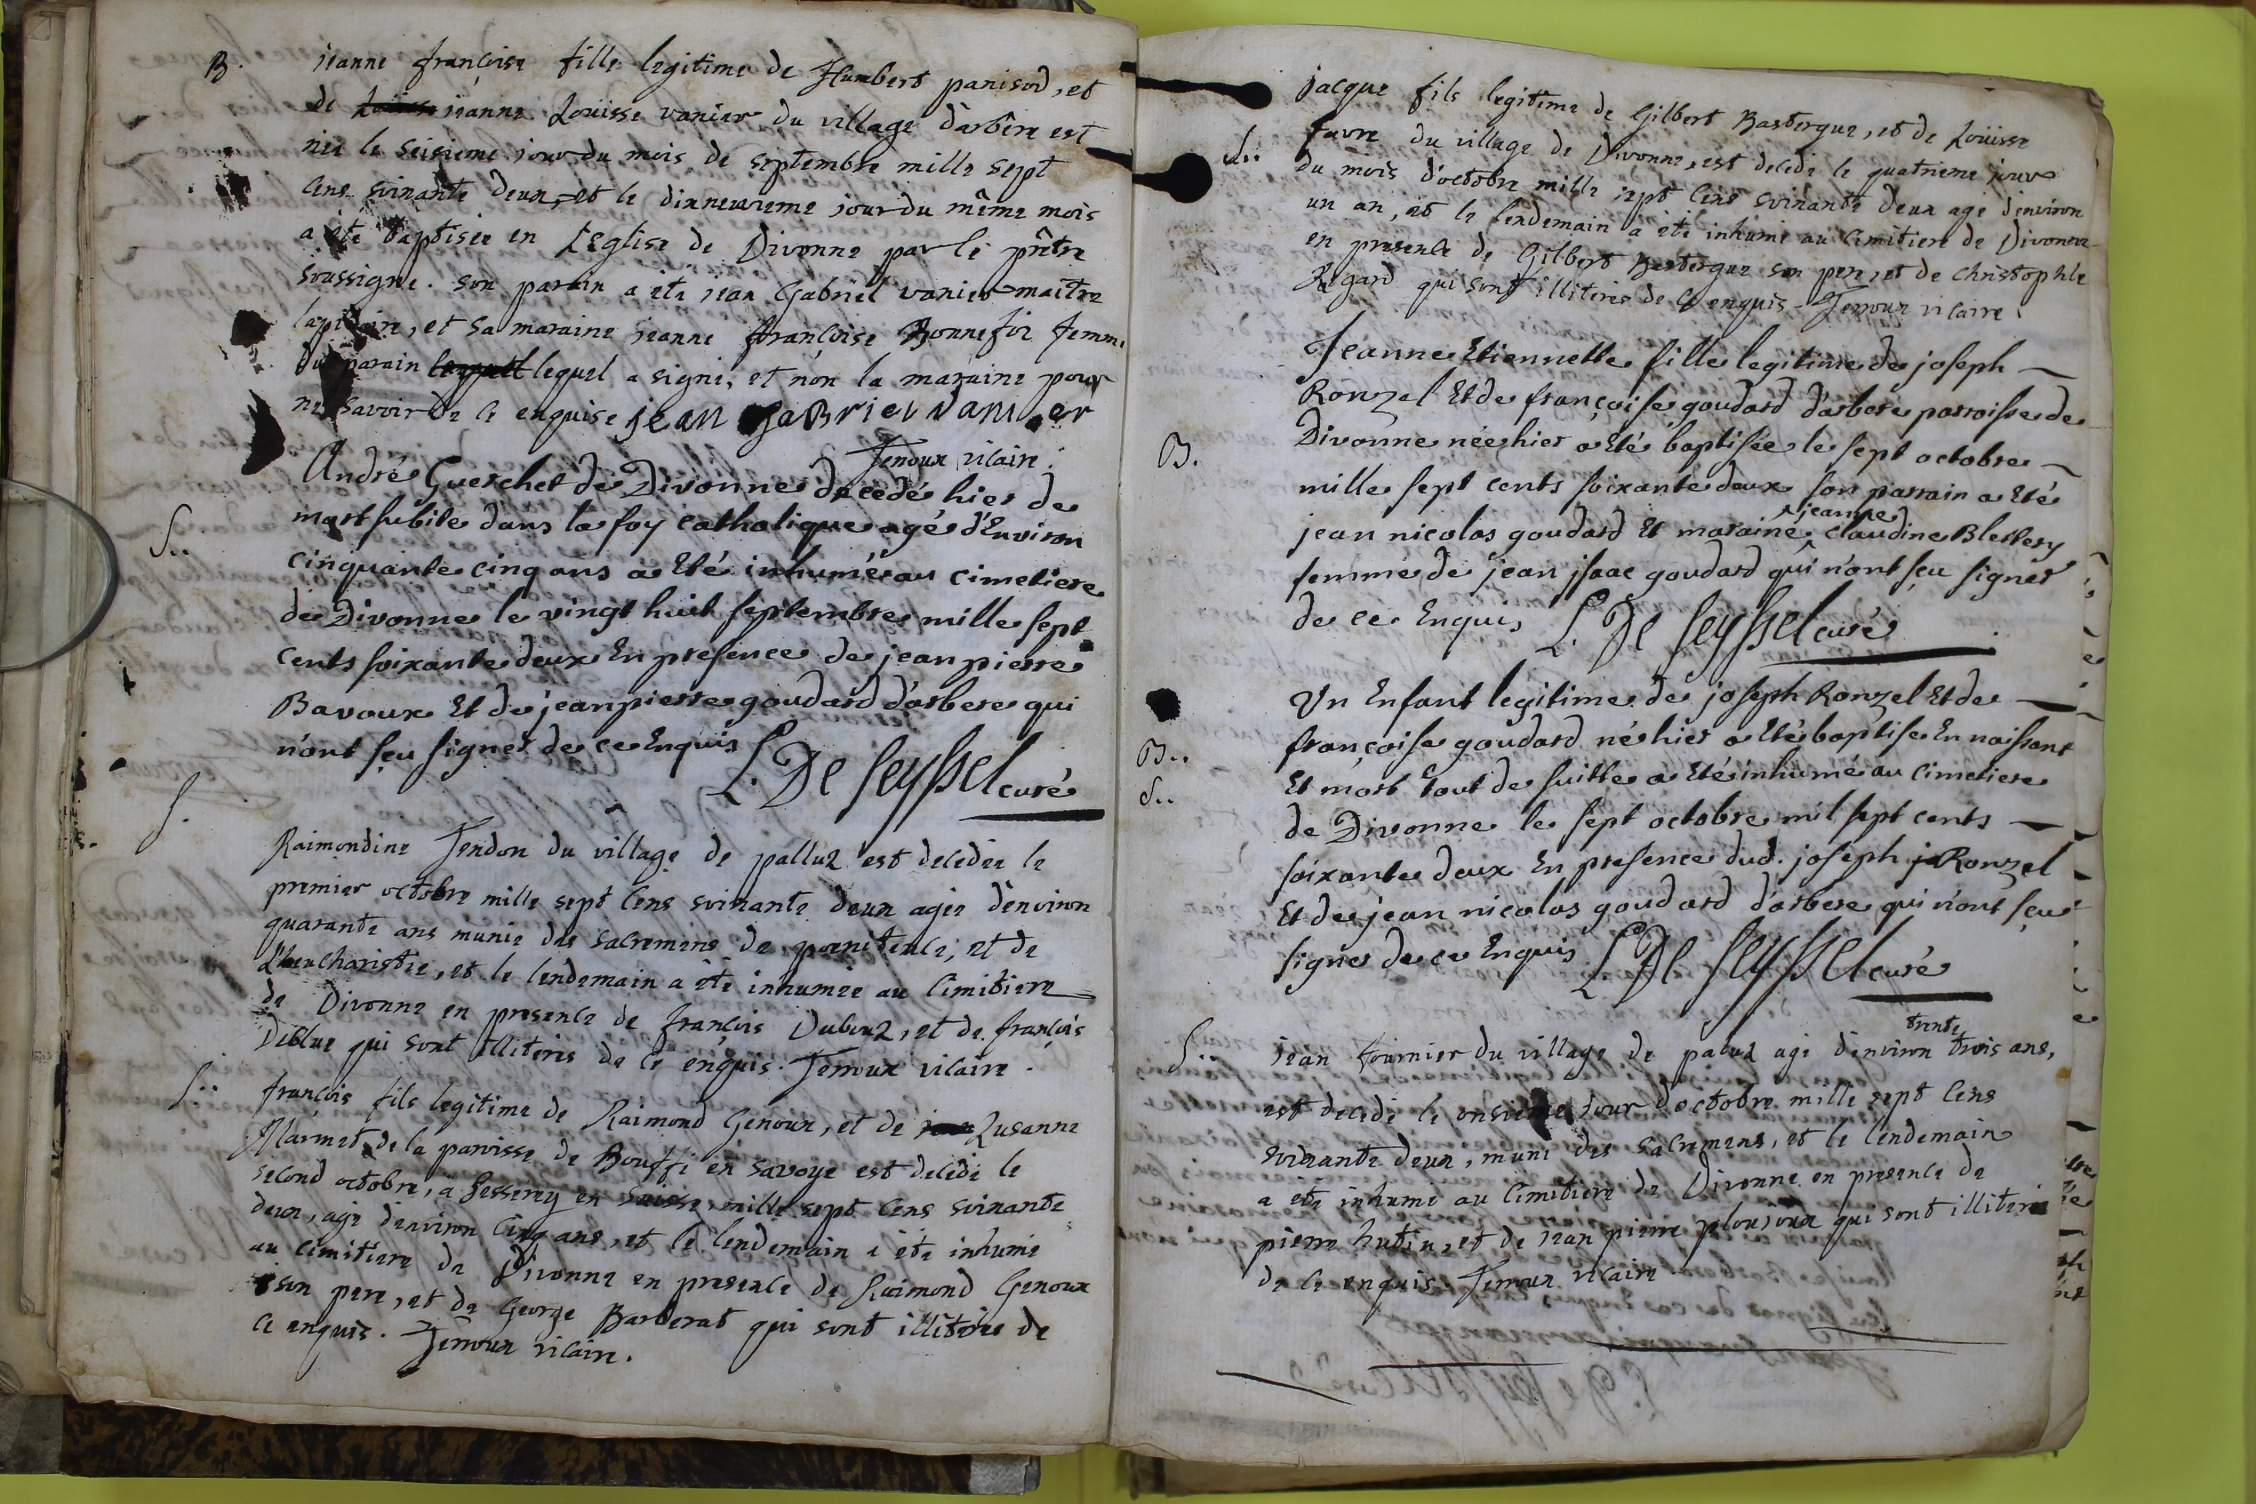 B. jeanne françoise fille legitime de Humbert panisod, et
de jeanne Loüisse vanier du village d'arbêre est
née le seisieme jour du mois de septembre mille sept
cens soixante deux, et le dixneuvieme jour du même mois
a été baptisée en l'Eglise de Divonne par le prêtre
soussigné. son parain a été jean Gabriel vanier maître
lapidaire, et sa maraine jeanne françoise Bonnefoi femme
du parain lequel a signé, et non la maraine pour
ne savoir de ce enquise jean gaBriel vanier
Tenoux vicaire.
André Guerchet de Divonne decedé hier de
S.. mort subite dans la foy catholique agé d'Environ
cinquante cinq ans a Eté inhumé au cimetiere
de Divonne le vingt huit septembre mille sept
cents soixante deux En presence de jean pierre
Bavoux Et de jean pierre goudard d'arbere qui
n'ont sçu signer de ce Enquis L. De seyssel curé
S. Raimondine Tendon du village de palluz est decedée le
premier octobre mille sept cens soixante deux agée d'environ
quarante ans munie des sacremens de pœnitence, et de
l'heucharistie, et le lendemain a été inhumée au cimitiere
de Divonne en presence de françois Dubouz, et de françois
Deblue qui sont illiterés de ce enquis. Terroux vicaire.
S.. françois fils legitime de Raimond Genoux, et de Susanne
Marmet de la paroisse de Bouffi en savoye est decedé le
second octobre, a Jesserey en Suisse, mille sept cens soixante
deux, agé d'environ cinq ans, et le lendemain a été inhumé
au cimitiere de Divonne en presence de Raimond Genoux
son pere, et de George Barberat qui sont illiterés de
ce enquis. Terroux vicaire.
jacque fils legitime de Gilbert Bastergue, et de Loüisse
S.. favre du village de Divonne, est decedé le quatrieme jour
du mois d'octobre mille sept cens soixante deux agé d'environ
un an, et le lendemain a été inhumé au cimitiere de Divonne
en presence de Gilbert Bastergue son pere, et de christophle
Regard qui sont illiterés de ce enquis. Terroux vicaire.
Jeanne Etiennette fille legitime de joseph
Ronzel Et de françoise goudard d'arbere parroisse de
B. Divonne née hier a Eté baptisée le sept octobre
mille sept cents soixante deux son parrain a Eté
jean nicolas goudard Et maraine jeanne claudine Blettery
femme de jean isaac goudard qui n'ont sçu signer
de ce Enquis L. De seyssel curé
Un Enfant legitime de joseph Ronzel Et de
B.. françoise goudard né hier a Eté baptisé En naissant
S.. Et mort tout de suitte a Eté inhumé au cimetiere
de Divonne le sept octobre mil sept cents
soixante deux En presence dud. joseph Ronzel
Et de jean nicolas goudard d'arbere qui n'ont sçu
signer de ce Enquis L. De seyssel curé
S.. jean fournier du village de paluz agé d'environ trente trois ans,
est decedé le onsieme jour d'octobre mille sept cens
soixante deux, muni des sacremens, et le lendemain
a été inhumé au cimitiere de Divonne en presence de
pierre hutin, et de jean pierre ploujoux qui sont illiterés
de ce enquis. Terroux vicaire.